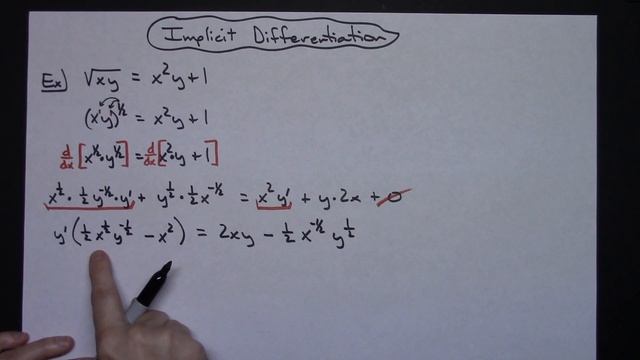 Implicit Differentiation
Ex) √xy = x²y+1
(x¹y¹)^½ = x²y+1
d/dx [x^½·y^½] = d/dx [x²·y+1]
x^½·½y^-½·y' + y^½·½x^-½ = x²y' + y·2x + 0
y'(½x^½y^-½ - x²) = 2xy - ½x^-½y^½